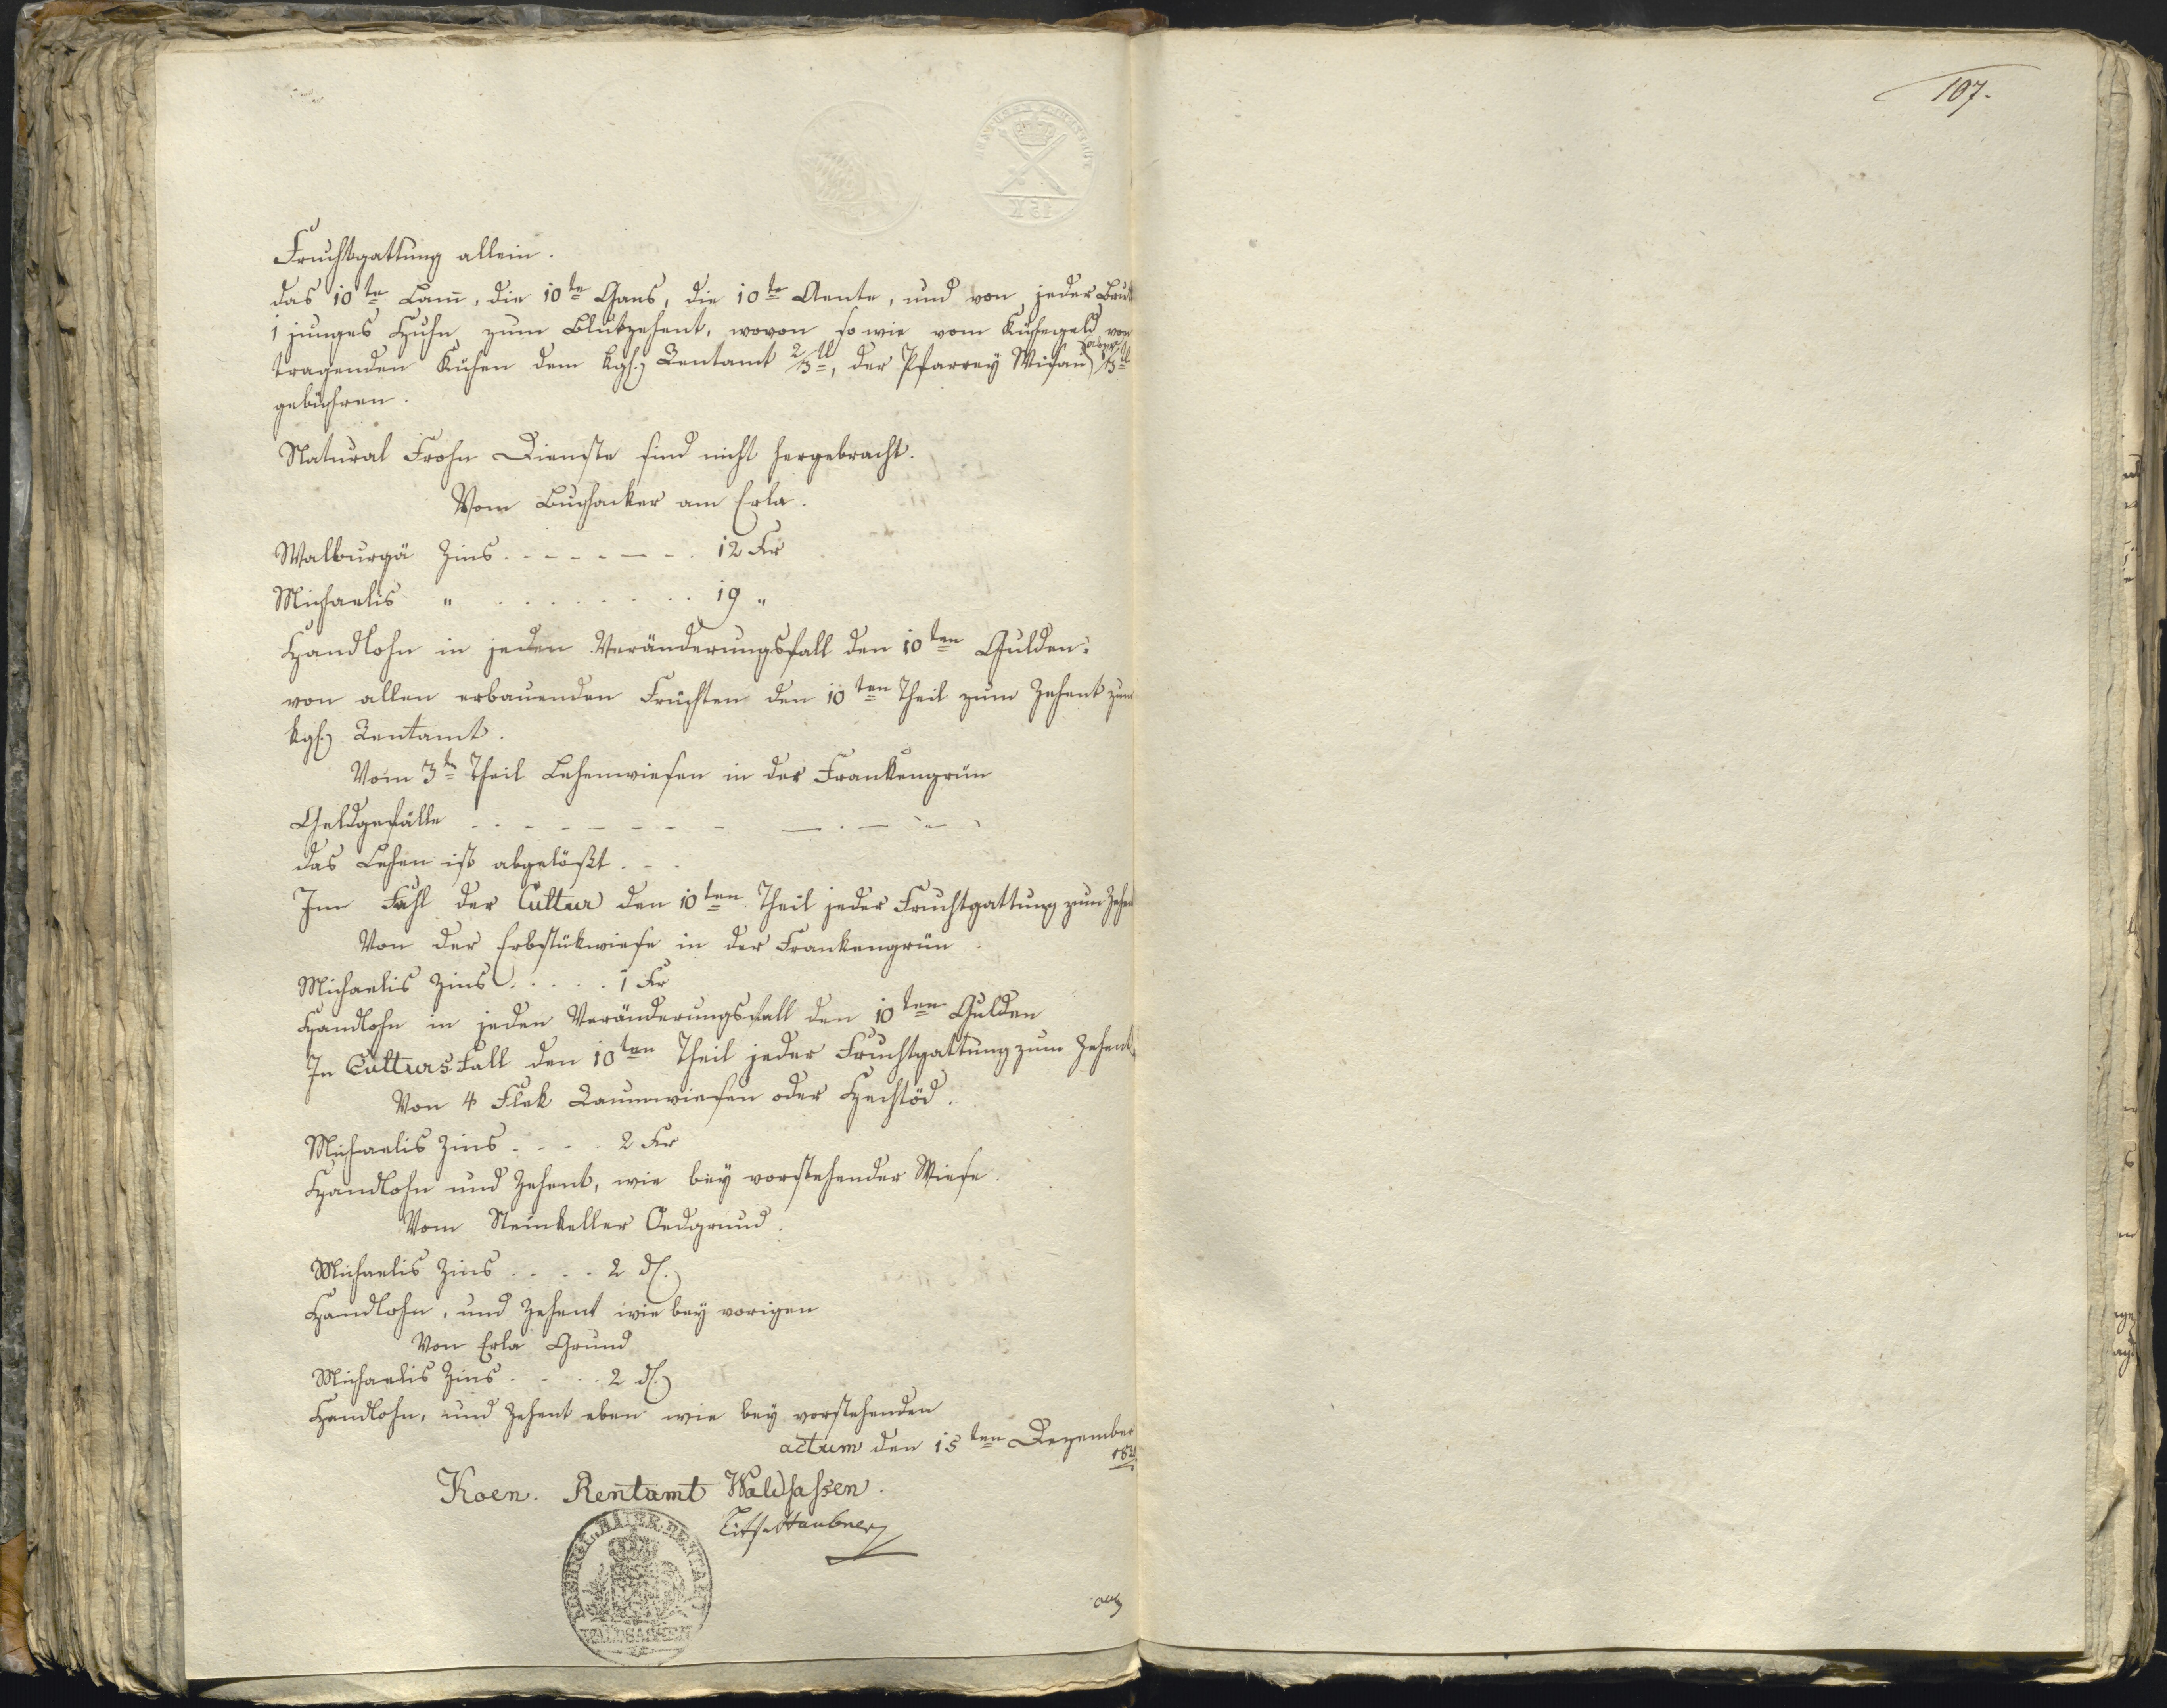 107.
Fruchtgattung allein.
das 10te Lam̄, die 10te Gans, die 10te Aente, und von jeder Brut
1 junges Huhn zum Blutzehent, wovon so wie vom Kühegeld von
tragenden Kühen dem kgh. Rentamt 2/3tl, der Pfarrey Wisau aber 1/3tl
gebühren.
Natural Frohn Dienste sind nicht hergebracht.
Vom Buchacker am Erla.
Walburgä Zins . . . . . . . 12 Kr
Michaelis " . . . . . . . . 19 "
Handlohn in jeden Veränderungsfall den 10ten Gulden.
von allen erbauenden Früchten den 10ten Theil zum Zehent zum
kgh. Rentamt.
Vom 3tn Theil Lehenwiesen in der Frankengrün
Geldgefälle . . . . . . . — . — . —
das Lehen ist abgelößt. -
Inn Fahl der Cultur den 10ten Theil jeder Fruchtgattung zum Zehen
Von der Erbstükwiese in der Frankengrün
Michaelis Zins . . . . . 1 Kr
Handlohn in jeden Veränderungsfall den 10ten Gulden
In Cultursfall den 10ten Theil jeder Fruchtgattung zum Zehent.
Von 4 Flek Raumwiesen oder Hechtöd.
Michaelis Zins . . . . 2 Kr
Handlohn und Zehent, wie bey vorstehender Wiese.
Vom Steinkeller Oedgrund.
Michaelis Zins . . . . 2 dl.
Handlohn, und Zehent wie bey vorigen
Von Erla Grund
Michaelis Zins . . . . 2 dl.
Handlohn, und Zehent eben wie bey vorstehenden
actum den 15ten Dezember
Koen. Rentamt Waldsassen.
KOENIGL. BAIER. RENTAMT
WALDSASSEN